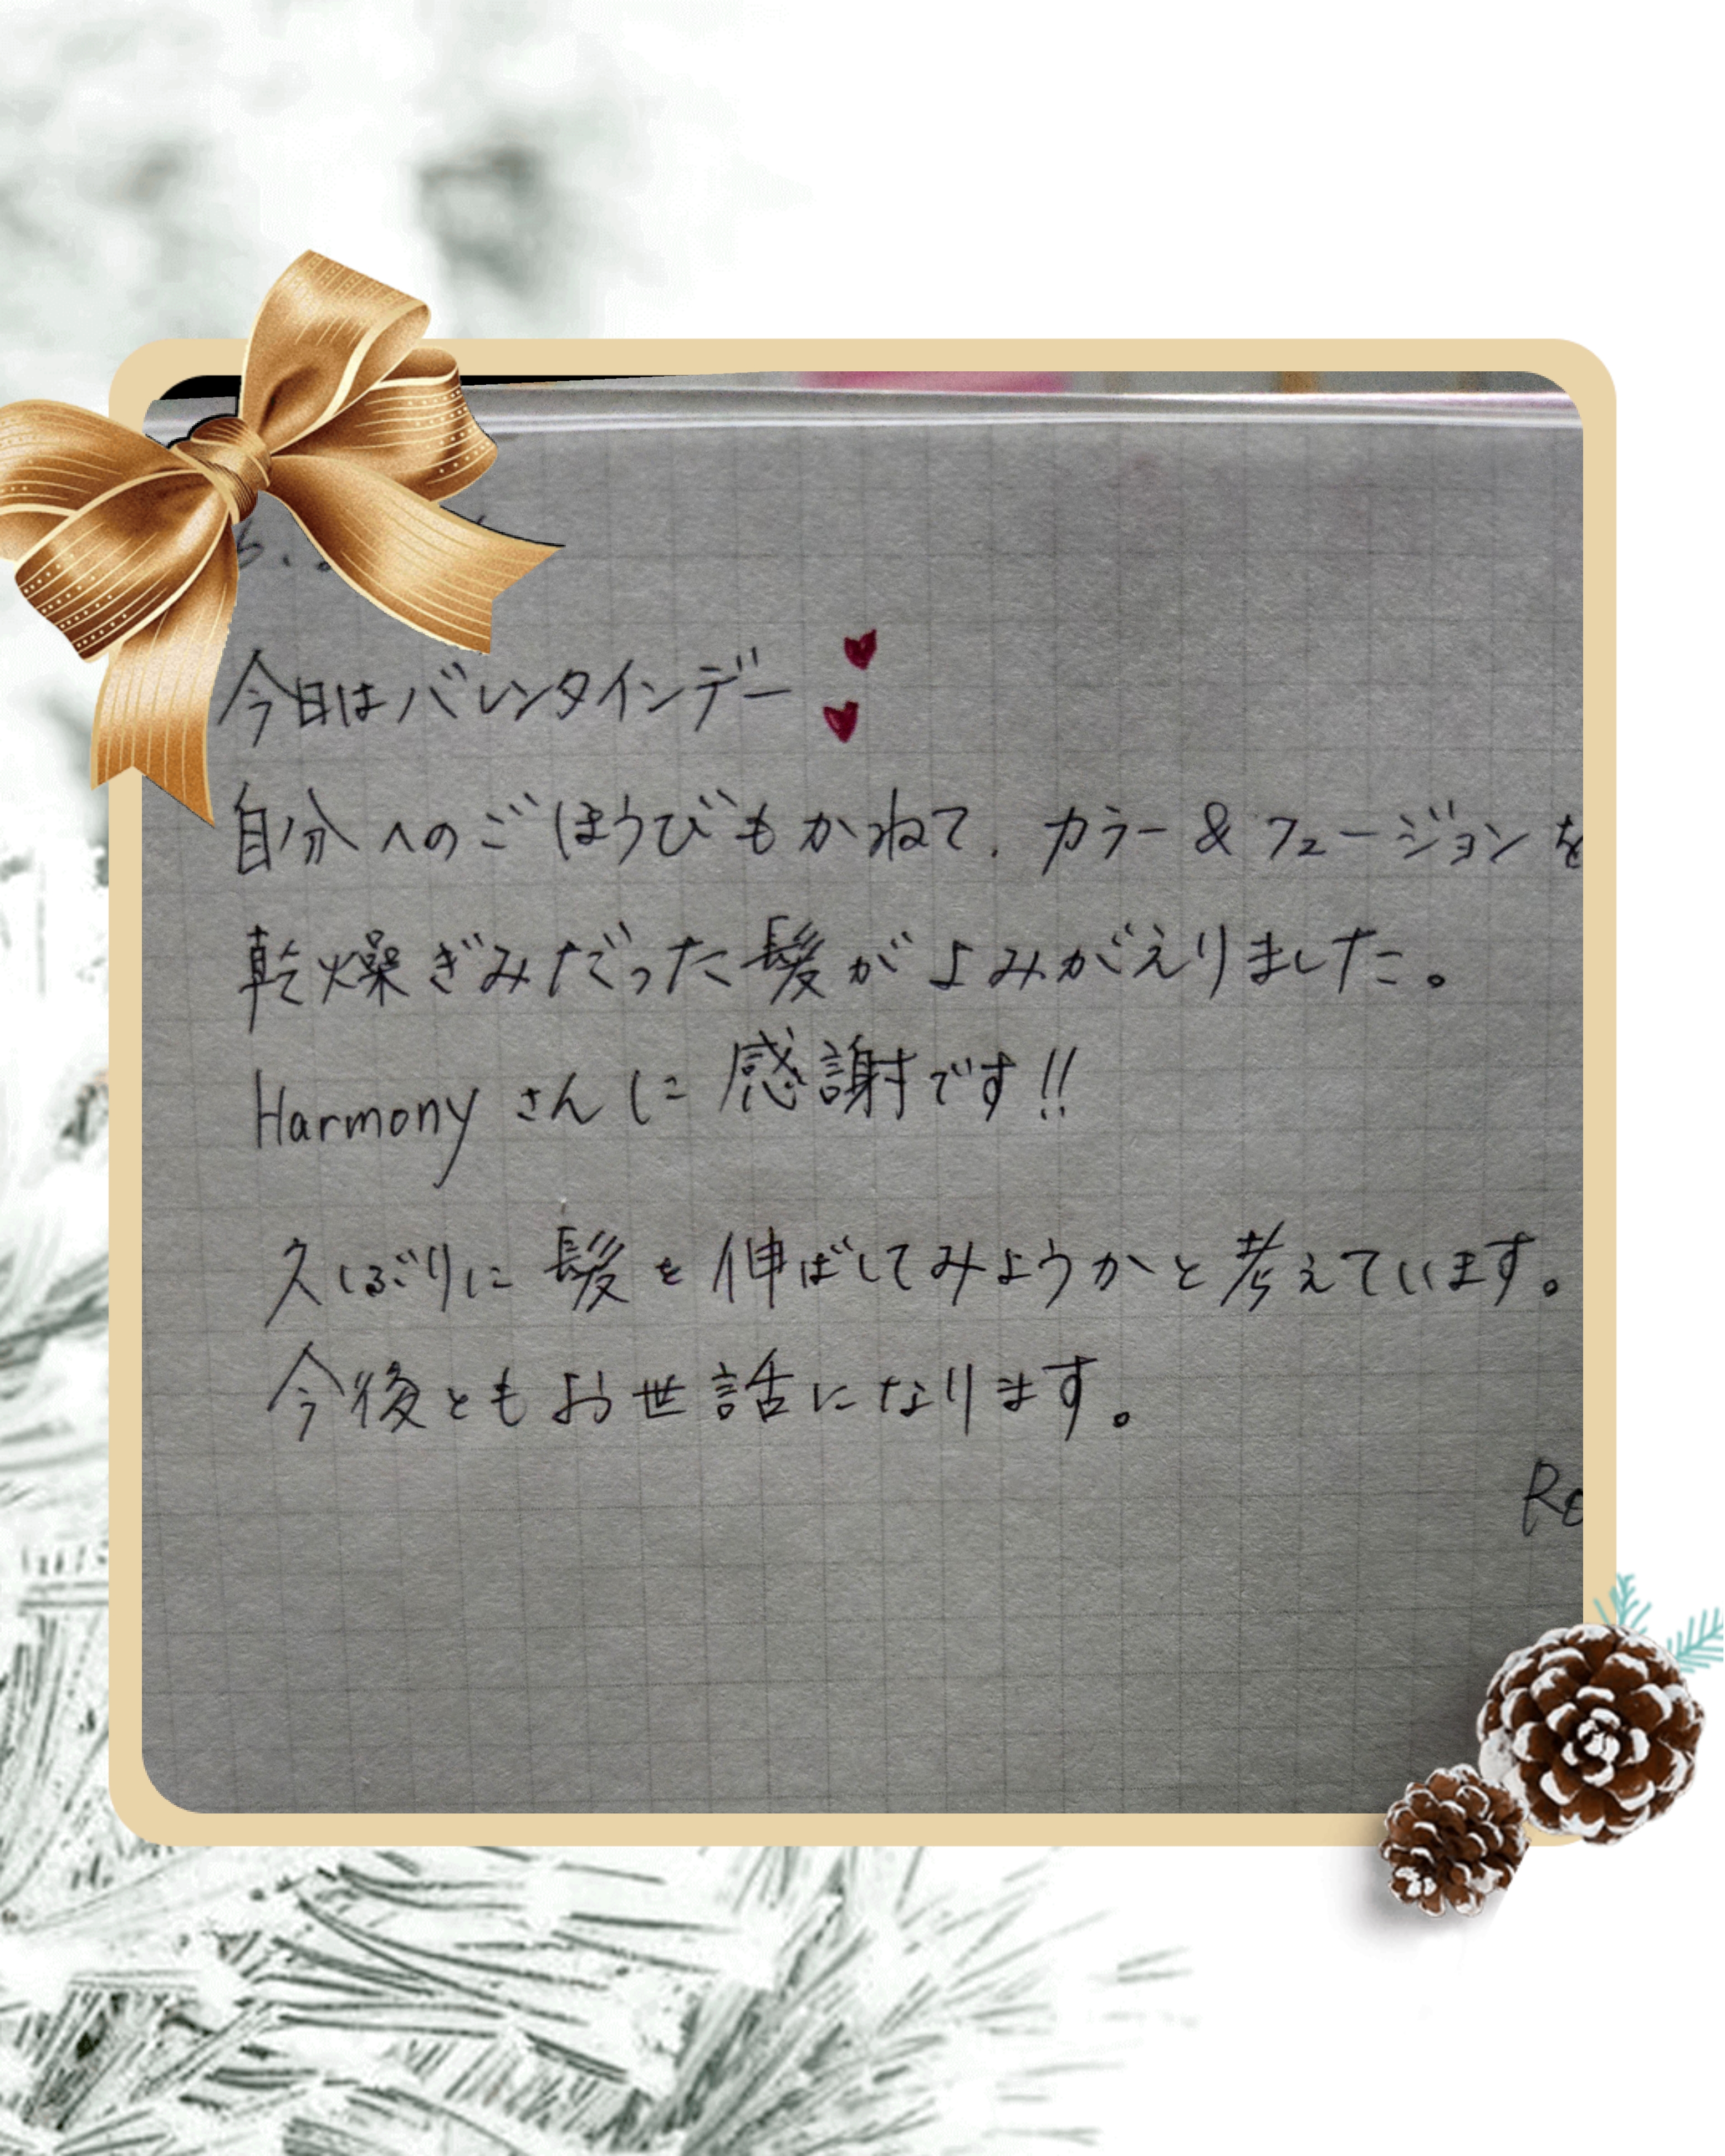 今日はバレンタインデー
自分へのごほうびもかねて、カラー&フュージョンを
乾燥ぎみだった髪がよみがえりました。
Harmonyさんに感謝です!!
久しぶりに髪を伸ばしてみようかと考えています。
今後ともお世話になります。